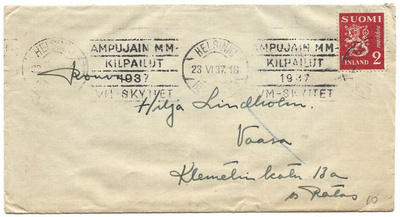 HELSINKI
AMPUJAIN MM-
KILPAILUT
1937
VM-SKYTTET
HELSINKI
23 VI 37. 18
AMPUJAIN MM-
KILPAILUT
1937
VM-SKYTTET
SUOMI
FINLAND 2
Hilja Lindholm.
Vaasa
Klemetinkatu 13a
10